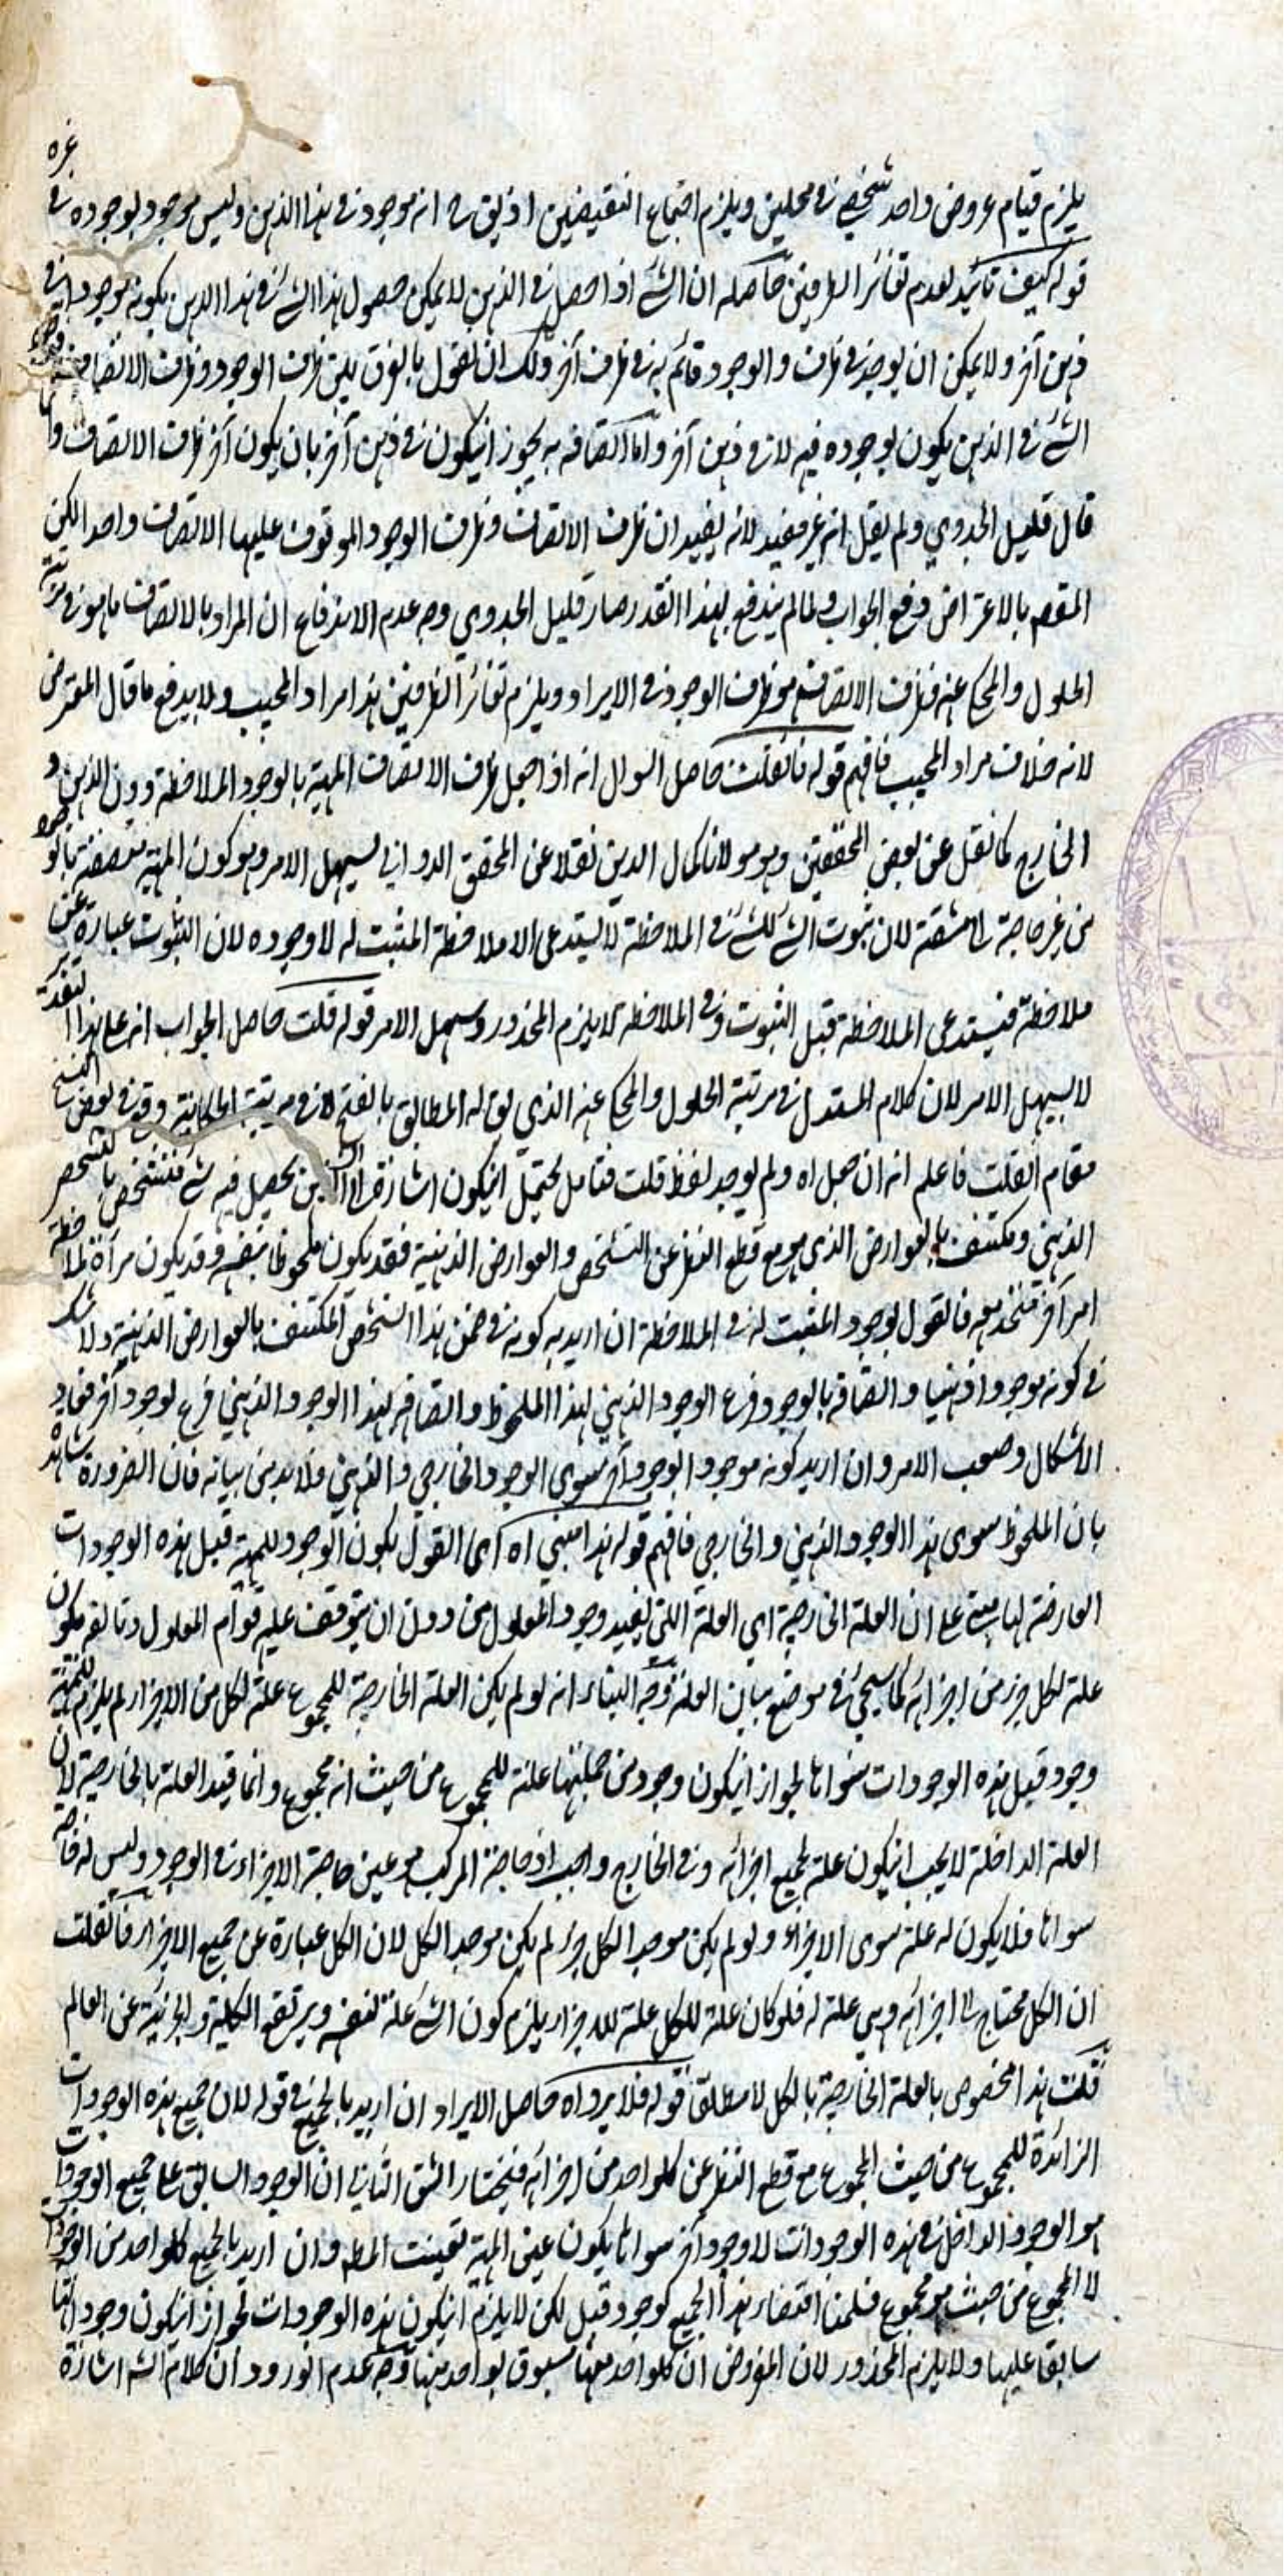 غيره
يلزم قيام عروض واحد شخصي في محلين ويلزم اجتماع النقيضين اذ يلزم ح انه موجود في هذا الذهن وليس موجود لوجوده في
قوله كيف تائيد لعدم تغائر الظرفين حاصله ان الشئ اذا حصل في الذهن لا يمكن حصول هذا الشئ في هذا الذهن بكونه موجودا في
ذهن آخر ولا يمكن ان يوجد في ظرف والوجود قائم به في ظرف آخر ولك ان تقول بالفرق بين ظرف الوجود وظرف الاتصاف
الشئ في الذهن يكون لوجوده فيه لا في ذهن آخر واما اتصافه به يجوز انيكون في ذهن آخر بان يكون آخر ظرف الاتصاف وا
قال قليل الجدوي ولم يقل انه غير مفيد لانه يفيد ان ظرف الاتصاف وظرف الوجود الموقوف عليها الاتصاف واحد لكن
المقصد بالاعتراض دفع الجواب ولما لم يندفع بهذا القدر صار قليل الجدوي وجه عدم الاندفاع ان المراد بالاتصاف ما هو في مرتبة
الحلول والمحكي عنه فظرف الاتصاف هو ظرف الوجود في الايراد ويلزم تغائر الظرفين هذا مراد المجيب ولا يدفع ما قال المعترض
لانه خلاف مراد المجيب فافهم قوله فانقلت حاصل السوال انه اذا جعل ظرف الاتصاف المهية بالوجود الملاحظة دون الذهن و
الخارج كما نقل عن بعض المحققين وهو مولانا كمال الدين نقلا عن المحقق الدواني يسهل الامر وهو كون المهية متصفة بالوجود
من غير حاجة الى مشقة لان ثبوت الشئ للشئ في الملاحظة لا يستدعى الا ملاحظة المثبت له لا وجوده لان الثبوت عبارة عن
ملاحظة فيستدعى الملاحظة قبل الثبوت وفى الملاحظة لا يلزم المحذور وسهل الامر قوله قلت حاصل الجواب انه على هذا التقدير
لا يسهل الامر لان كلام المستدل في مرتبة الحلول والمحكي عنه الذي يق له المطابق بالفتح لا في مرتبة الحكاية وقع في بعض النسخ
مقام انقلت فاعلم انه ان جعل اه ولم يوجد لفظ قلت فتامل يحتمل انيكون اشارة الى ان الذهن يحصل فيه شئ فتشخص بالتشخص
الذهني ومكتنف بالعوارض الذي هو مع قطع النظر عن التشخص والعوارض الذهنية فقد يكون ملحوظا بنفسه وقد يكون مرآة لملاحظة
امر آخر متحد معه فالقول بوجود المثبت له في الملاحظة ان اريد به كونه في ضمن هذا الشخص المكتنف بالعوارض الذهنية ولا شك
في كونه موجودا ذهنيا واتصافه بالوجود فرع الوجود الذهني لهذا الملحوظ واتصافه لهذا الوجود الذهني فرع لوجود آخر فعاد
الاشكال وصعب الامر وان اريد كونه موجود الوجود آخر سوى الوجود الخارجي والذهني فلا بد من بيانه فان الضرورة شاهدة
بان الملحوظ سوى هذا الوجود الذهني والخارجي فافهم قوله هذا مبني اه اى القول بكون الوجود للمهية قبل هذه الوجودات
العارضة لها مبنى على ان العلة الخارجية اي العلة التى يفيد وجود المعلول من دون ان يتوقف عليه قوام المعلول وتالفه يكون
علة لكل جزء من اجزائه كما سيجئ في موضع بيان العلة وجه البناء انه لو لم يكن العلة الخارجة للمجموع علة لكل من الاجزاء لم يلزم للمهية
وجود قبل هذه الوجودات سواها لجواز انيكون وجود من جملتها علة للمجموع من حيث انه مجموع وانما قيد العلة بالخارجة لان
العلة الداخلة لا يجب انيكون علة لجميع اجزائه وفى الخارج واجب اذ حاجة المركب هو عين حاجة الاجزاء في الوجود وليس له حاجة
سواها فلا يكون له علة سوى الاجزاء ولو لم يكن موجد الكل جزء لم يكن موجد الكل لان الكل عبارة عن جميع الاجزاء فانقلت
ان الكل محتاج الى اجزائه وهى علة له فلو كان علة للكل علة للاجزاء يلزم كون الشئ علة لنفسه ويرتفع الكلية والجزئية عن العالم
قلت هذا مخصوص بالعلة الخارجة بالكل لا مطلق قوله فلا يرد اه حاصل الايراد ان اريد بالجميع في قوله لان جميع هذه الوجودات
الزائدة للمجموع من حيث المجموع مع قطع النظر عن كلواحد من اجزائه فيختار الشق الثاني ان الوجود السابق على جميع الوجودات
هو الوجود الداخل في هذه الوجودات لا وجود آخر سواها يكون عين المهية تعينت المط وان اريد بالجميع كلواحد من الوجودات
لا المجموع من حيث هو مجموع فسلمنا اقتضاء هذا الجميع لوجود قبل لكن لا يلزم انيكون هذه الوجودات لجواز انيكون وجود
سابقا عليها ولا يلزم المحذور لان المفروض ان كلواحد منها مسبوق بواحد منها وجه عدم الورود ان كلام الشه اشارة